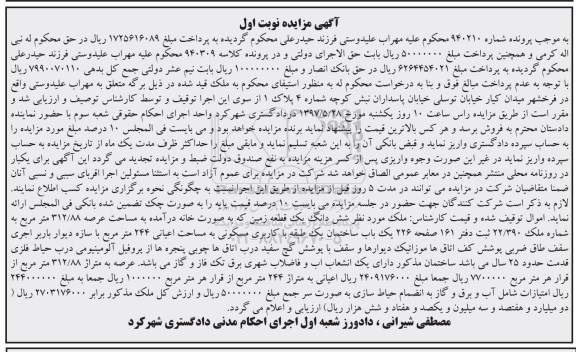 آگهی مزایده نوبت اول
به موجب پرونده شماره ۹۴۰۲۱۰ محکوم علیه مهراب علیدوستی فرزند حیدرعلی محکوم گردیده به پرداخت مبلغ ۱۷۲۵۶۱۶۰۸۹ ریال در حق محکوم له نبی
اله کرمی و همچنین پرداخت مبلغ ۵۰۰۰۰۰۰۰ ریال بابت حق الاجرای دولتی و در پرونده کلاسه ۹۴۰۳۰۹ محکوم علیه مهراب علیدوستی فرزند حیدرعلی
محکوم گردیده به پرداخت مبلغ ۶۲۶۴۴۵۴۰۲۱ ریال در حق بانک انصار و مبلغ ۱۰۰۰۰۰۰۰۰ ریال بابت نیم عشر دولتی جمع کل بدهی ۷۹۹۰۰۷۰۱۱۰ ریال
با توجه به عدم پرداخت مبالغ فوق و بنا به درخواست محکوم له به منظور استیفای محکوم به ملک قید شده در ذیل برگه متعلق به مهراب علیدوستی واقع
در فرخشهر میدان کیار خیابان توسلی خیابان پاسداران نبش کوچه شماره ۴ پلاک ۱ از سوی این اجرا توقیف و توسط کارشناس توصیف و ارزیابی شد و
مقرر است از طریق مزایده راس ساعت ۱۰ روز یکشنبه مورخ ۱۳۹۷/۰۵/۲۸ دردادگستری شهرکرد واحد اجرای احکام حقوقی شعبه سوم با حضور نماینده
دادستان محترم به فروش برسد و هر کس بالاترین قیمت را پیشنهاد نماید برنده مزایده خواهد بود و می بایست فی المجلس ۱۰ درصد مبلغ مورد مزایده را
به حساب سپرده دادگستری واریز نماید و قبض بانکی آن را به این شعبه تسلیم نماید و مابقی مبلغ را حداکثر ظرف مدت یک ماه از تاریخ مزایده به حساب
سپرده واریز نماید در غیر این صورت وجوه واریزی پس از کسر هزینه مزایده به نفع صندوق دولت ضبط و مزایده تجدید می گردد این آگهی برای یکبار
در روزنامه محلی منتشر همچنین در معابر عمومی الصاق خواهد شد شرکت در مزایده برای عموم آزاد است به استثنا مسئولین اجرا اقربای سببی و نسبی آنان
ضمنا متقاضیان شرکت در مزایده می توانند در مدت ۵ روز قبل از مزایده از طریق این اجرا نسبت به چگونگی نحوه برگزاری مزایده کسب اطلاع نمایند.
لازم به ذکر است شرکت کنندگان جهت حضور در جلسه مزایده می بایست ۱۰ درصد قیمت پایه را به صورت چک تضمین شده بانکی فی المجلس ارائه
نماید. اموال توقیف شده و قیمت کارشناس: ملک مورد نظر شش دانگ یک قطعه زمین که به صورت خانه درآمده به مساحت عرصه ۳۱۲/۸۸ متر مربع به
شماره ملک ۲۲/۳۹۰ ثبت دفتر ۱۶۱ صفحه ۲۲۶ یک باب ساختمان یک طبقه با کاربری مسکونی به مساحت اعیانی ۲۴۴ متر مربع با سازه دیوار باربر اجری
سقف طاق ضربی پوشش کف اتاق ها موزائیک دیوارها و سقف با پوشش گچ سفید درب اتاق ها چوبی پنجره ها از پروفیل آلومینیومی درب حیاط فلزی
قدمت حدود ۲۵ سال می باشد ساختمان مذکور دارای یک انشعاب اب و فاضلاب شهری برق تک فاز و گاز می باشد. عرصه به متراژ ۳۱۲/۸۸ متر مربع از
قرار هر متر مربع ۷۷۰۰۰۰۰ ریال جمعا مبلغ ۲۴۰۹۱۷۶۰۰۰ ریال اعیانی به متراژ ۲۴۴ متر مربع از قرار هر متر مربع ۱۰۰۰۰۰۰ ریال جمعا به مبلغ ۲۴۴۰۰۰۰۰۰
ریال امتیازات شامل آب و برق و گاز به انضمام حیاط سازی به صورت سر جمع مبلغ ۵۰۰۰۰۰۰۰ ریال و ارزش کل ملک مذکور برابر ۲۷۰۳۱۷۶۰۰۰ ریال (
دو میلیارد و هفتصد و سه میلیون و یکصد و هفتاد و شش هزار ریال) ارزیابی و اعلام می گردد.
مصطفی شیرانی ، دادورز شعبه اول اجرای احکام مدنی دادگستری شهرکرد